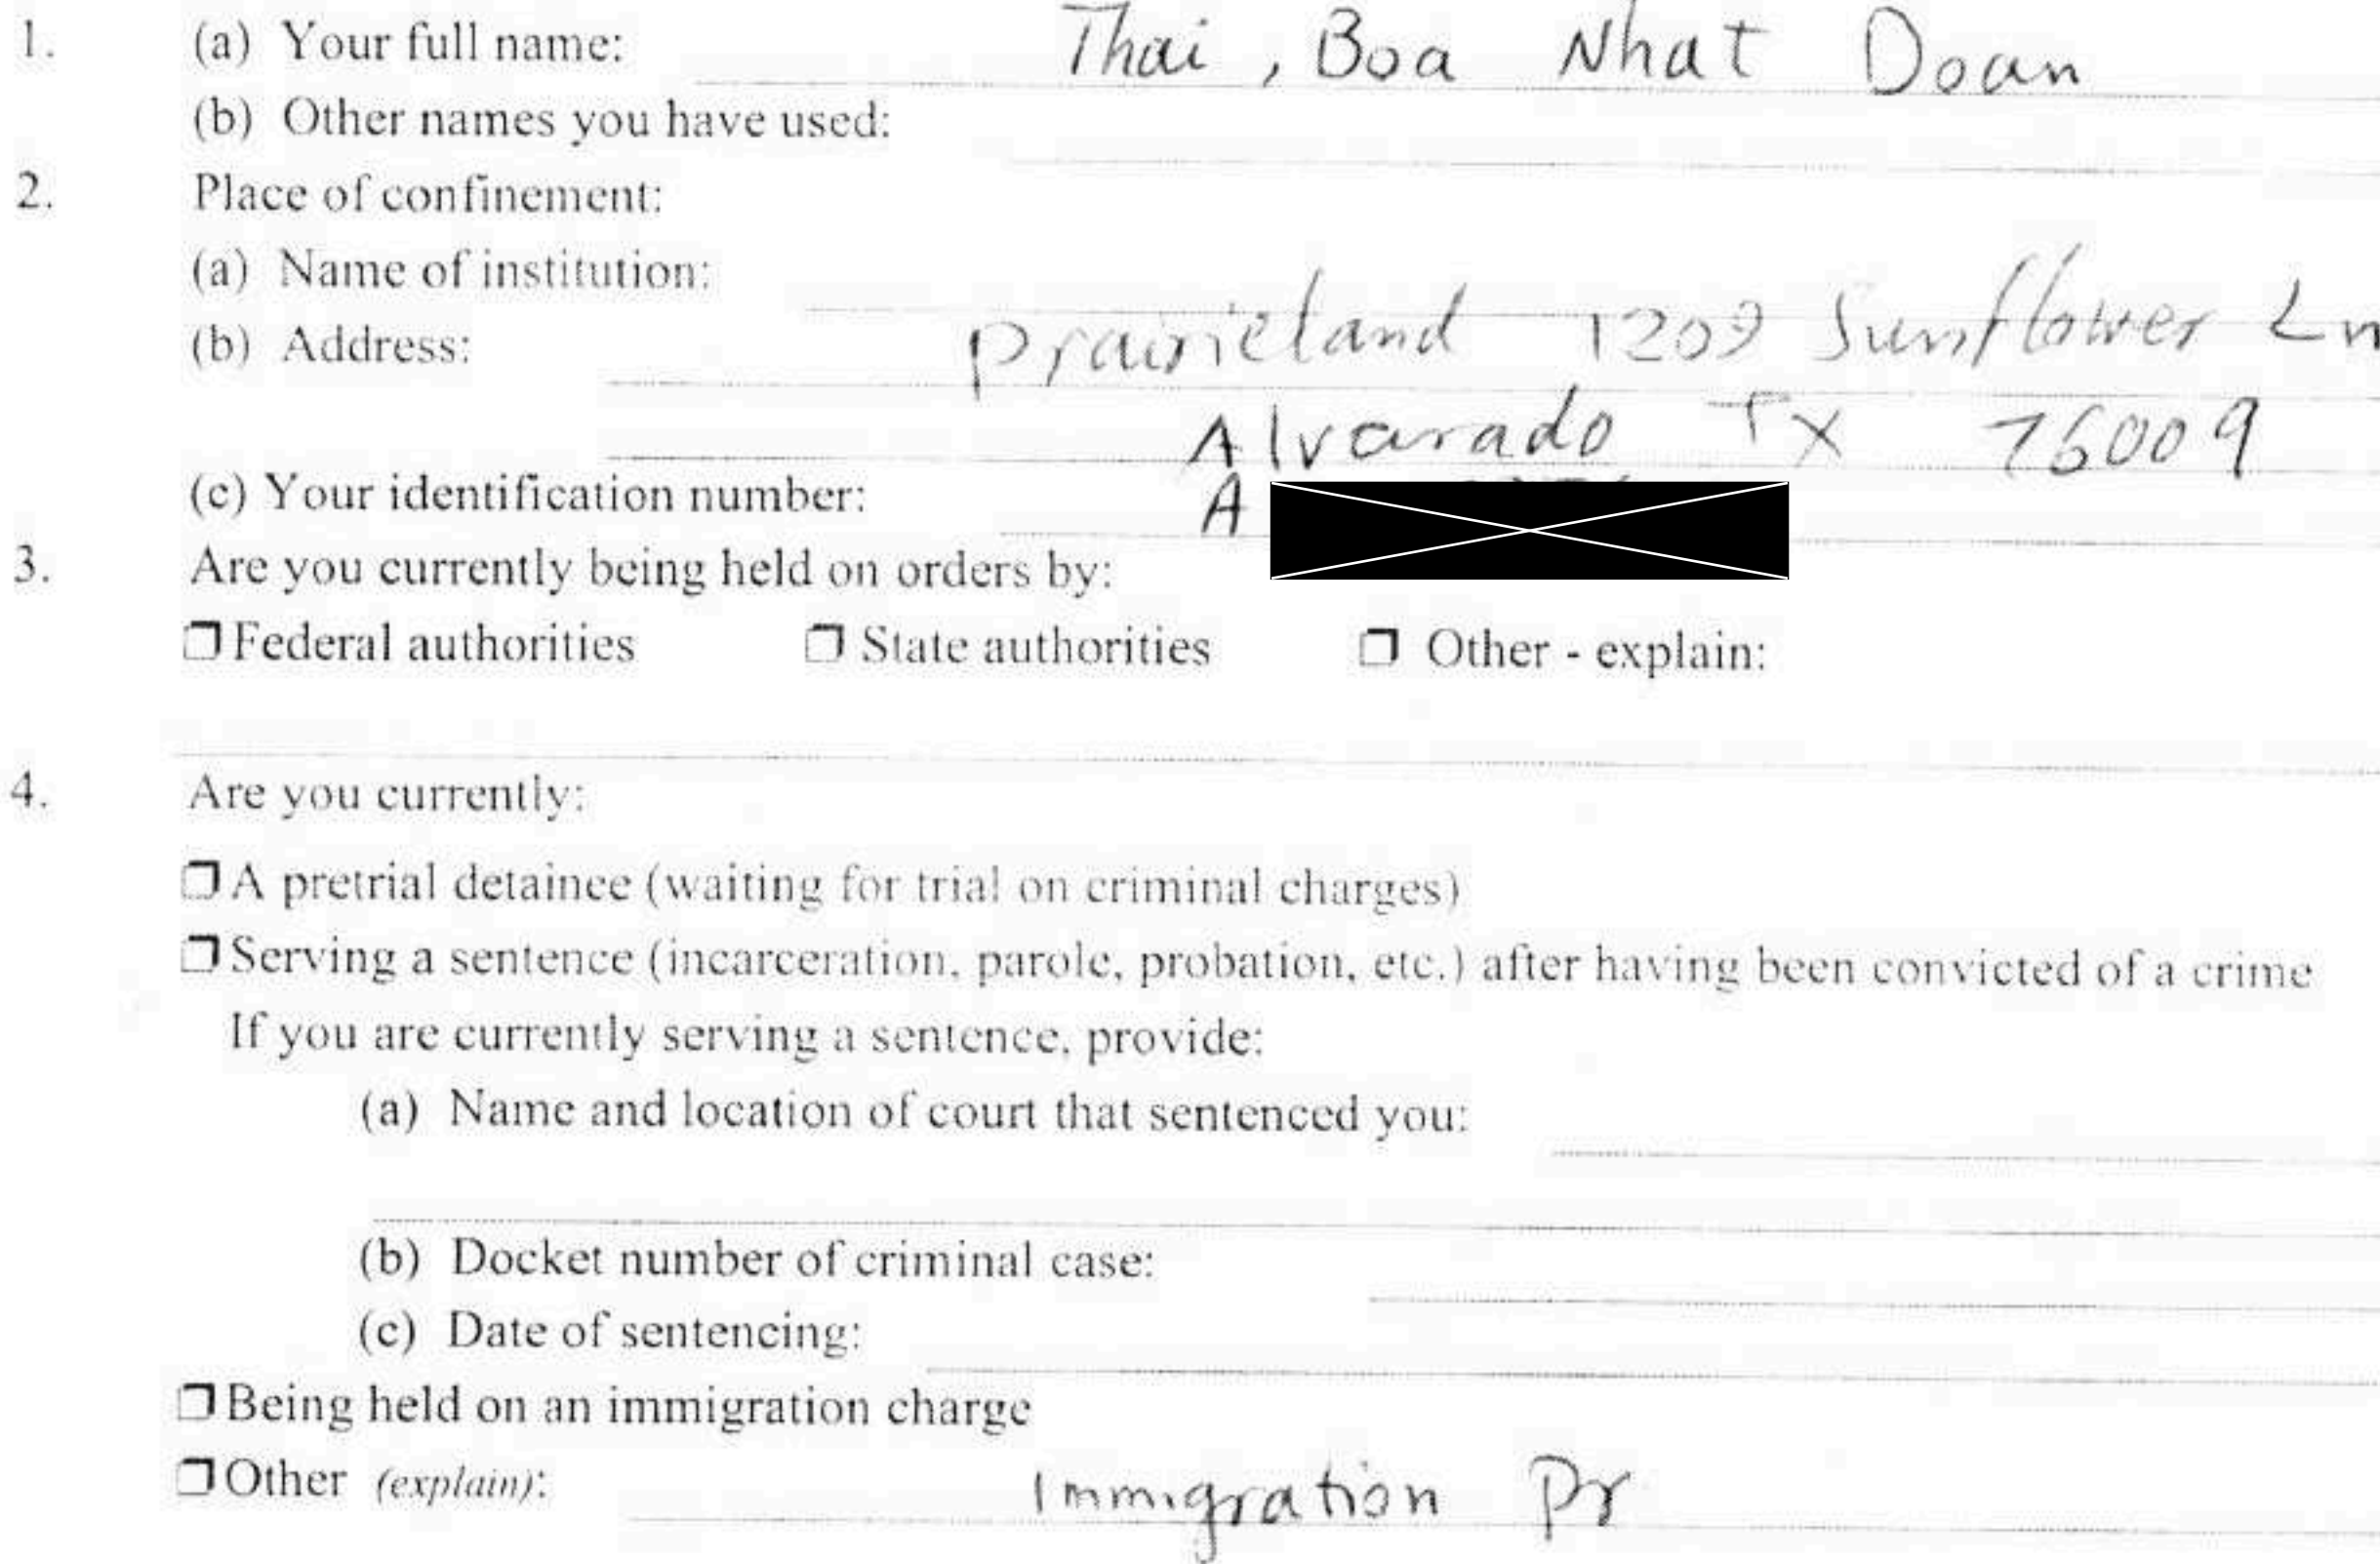 1. (a) Your full name: Thai, Boa Nhat Doan
(b) Other names you have used:
2. Place of confinement:
(a) Name of institution:
(b) Address: Prairieland 1209 Sunflower Ln
Alvarado TX 76009
(c) Your identification number: A
3. Are you currently being held on orders by:
❒ Federal authorities ❒ State authorities ❒ Other - explain:
4. Are you currently:
❒ A pretrial detainee (waiting for trial on criminal charges)
❒ Serving a sentence (incarceration, parole, probation, etc.) after having been convicted of a crime
If you are currently serving a sentence, provide:
(a) Name and location of court that sentenced you:
(b) Docket number of criminal case:
(c) Date of sentencing:
❒ Being held on an immigration charge
❒ Other (explain): Immigration Pr